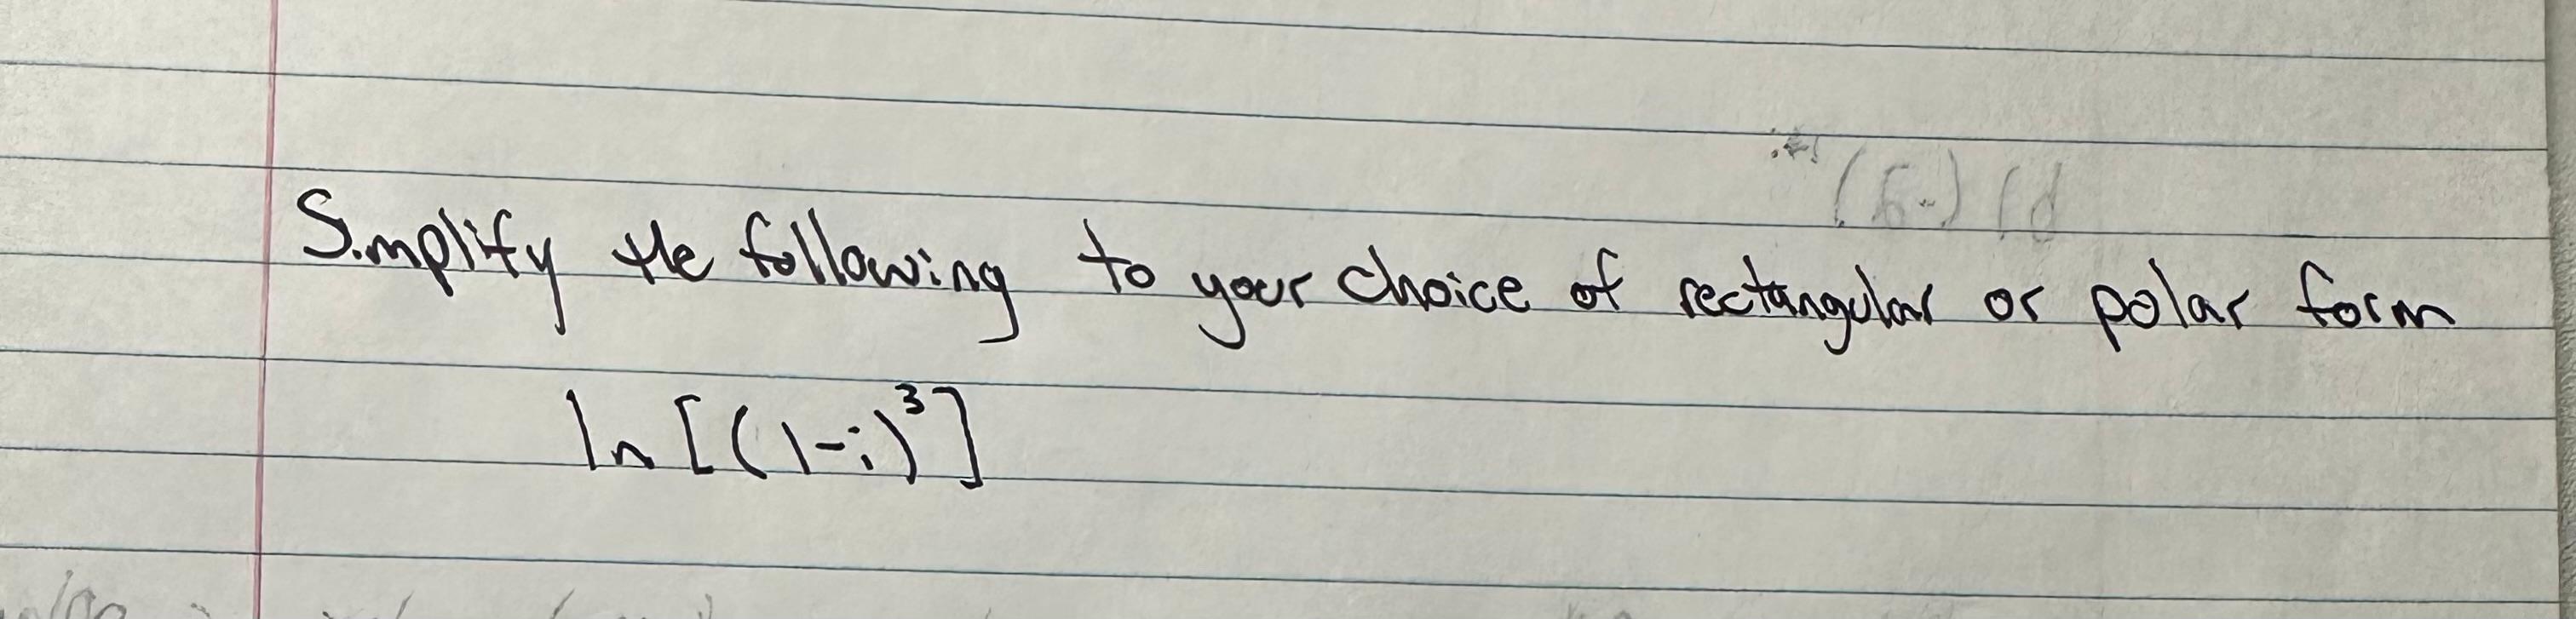 Simplify the following to your choice of rectangular or polar form
ln[(1-i)³]